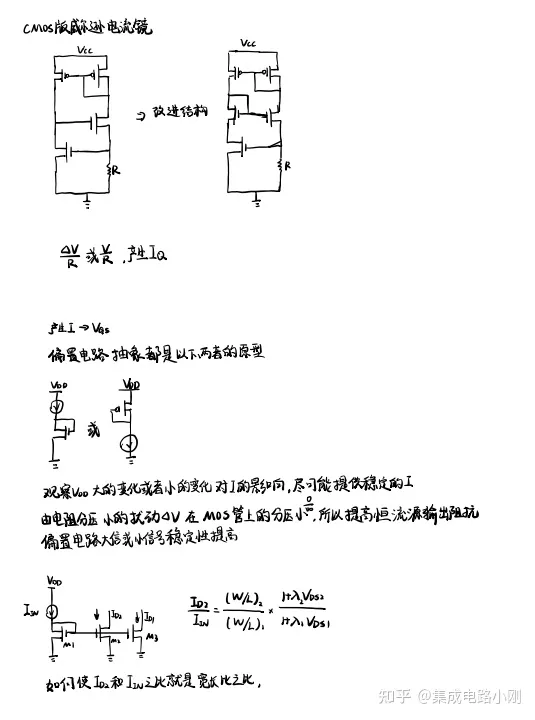 CMOS版威尔逊电流镜
Vcc
Vcc
→ 改进结构
R
R
ΔV/R 或 V/R , 产生IQ
产生I → VGS
偏置电路抽象都是以下两者的原型
VDD
VDD
或
观察VDD大的变化或者小的变化对I的影响,尽可能提供稳定的I
由电阻分压 小的扰动ΔV 在MOS管上的分压小,所以提高恒流源输出阻抗
偏置电路大信或小信号稳定性提高
VDD
IIN
ID2
ID1
M1
M2
M3
ID2/IIN = (W/L)2/(W/L)1 × 1+λ2VDS2/1+λ1VDS1
如何使ID2和IIN之比就是宽长比之比,
知乎 @集成电路小刚